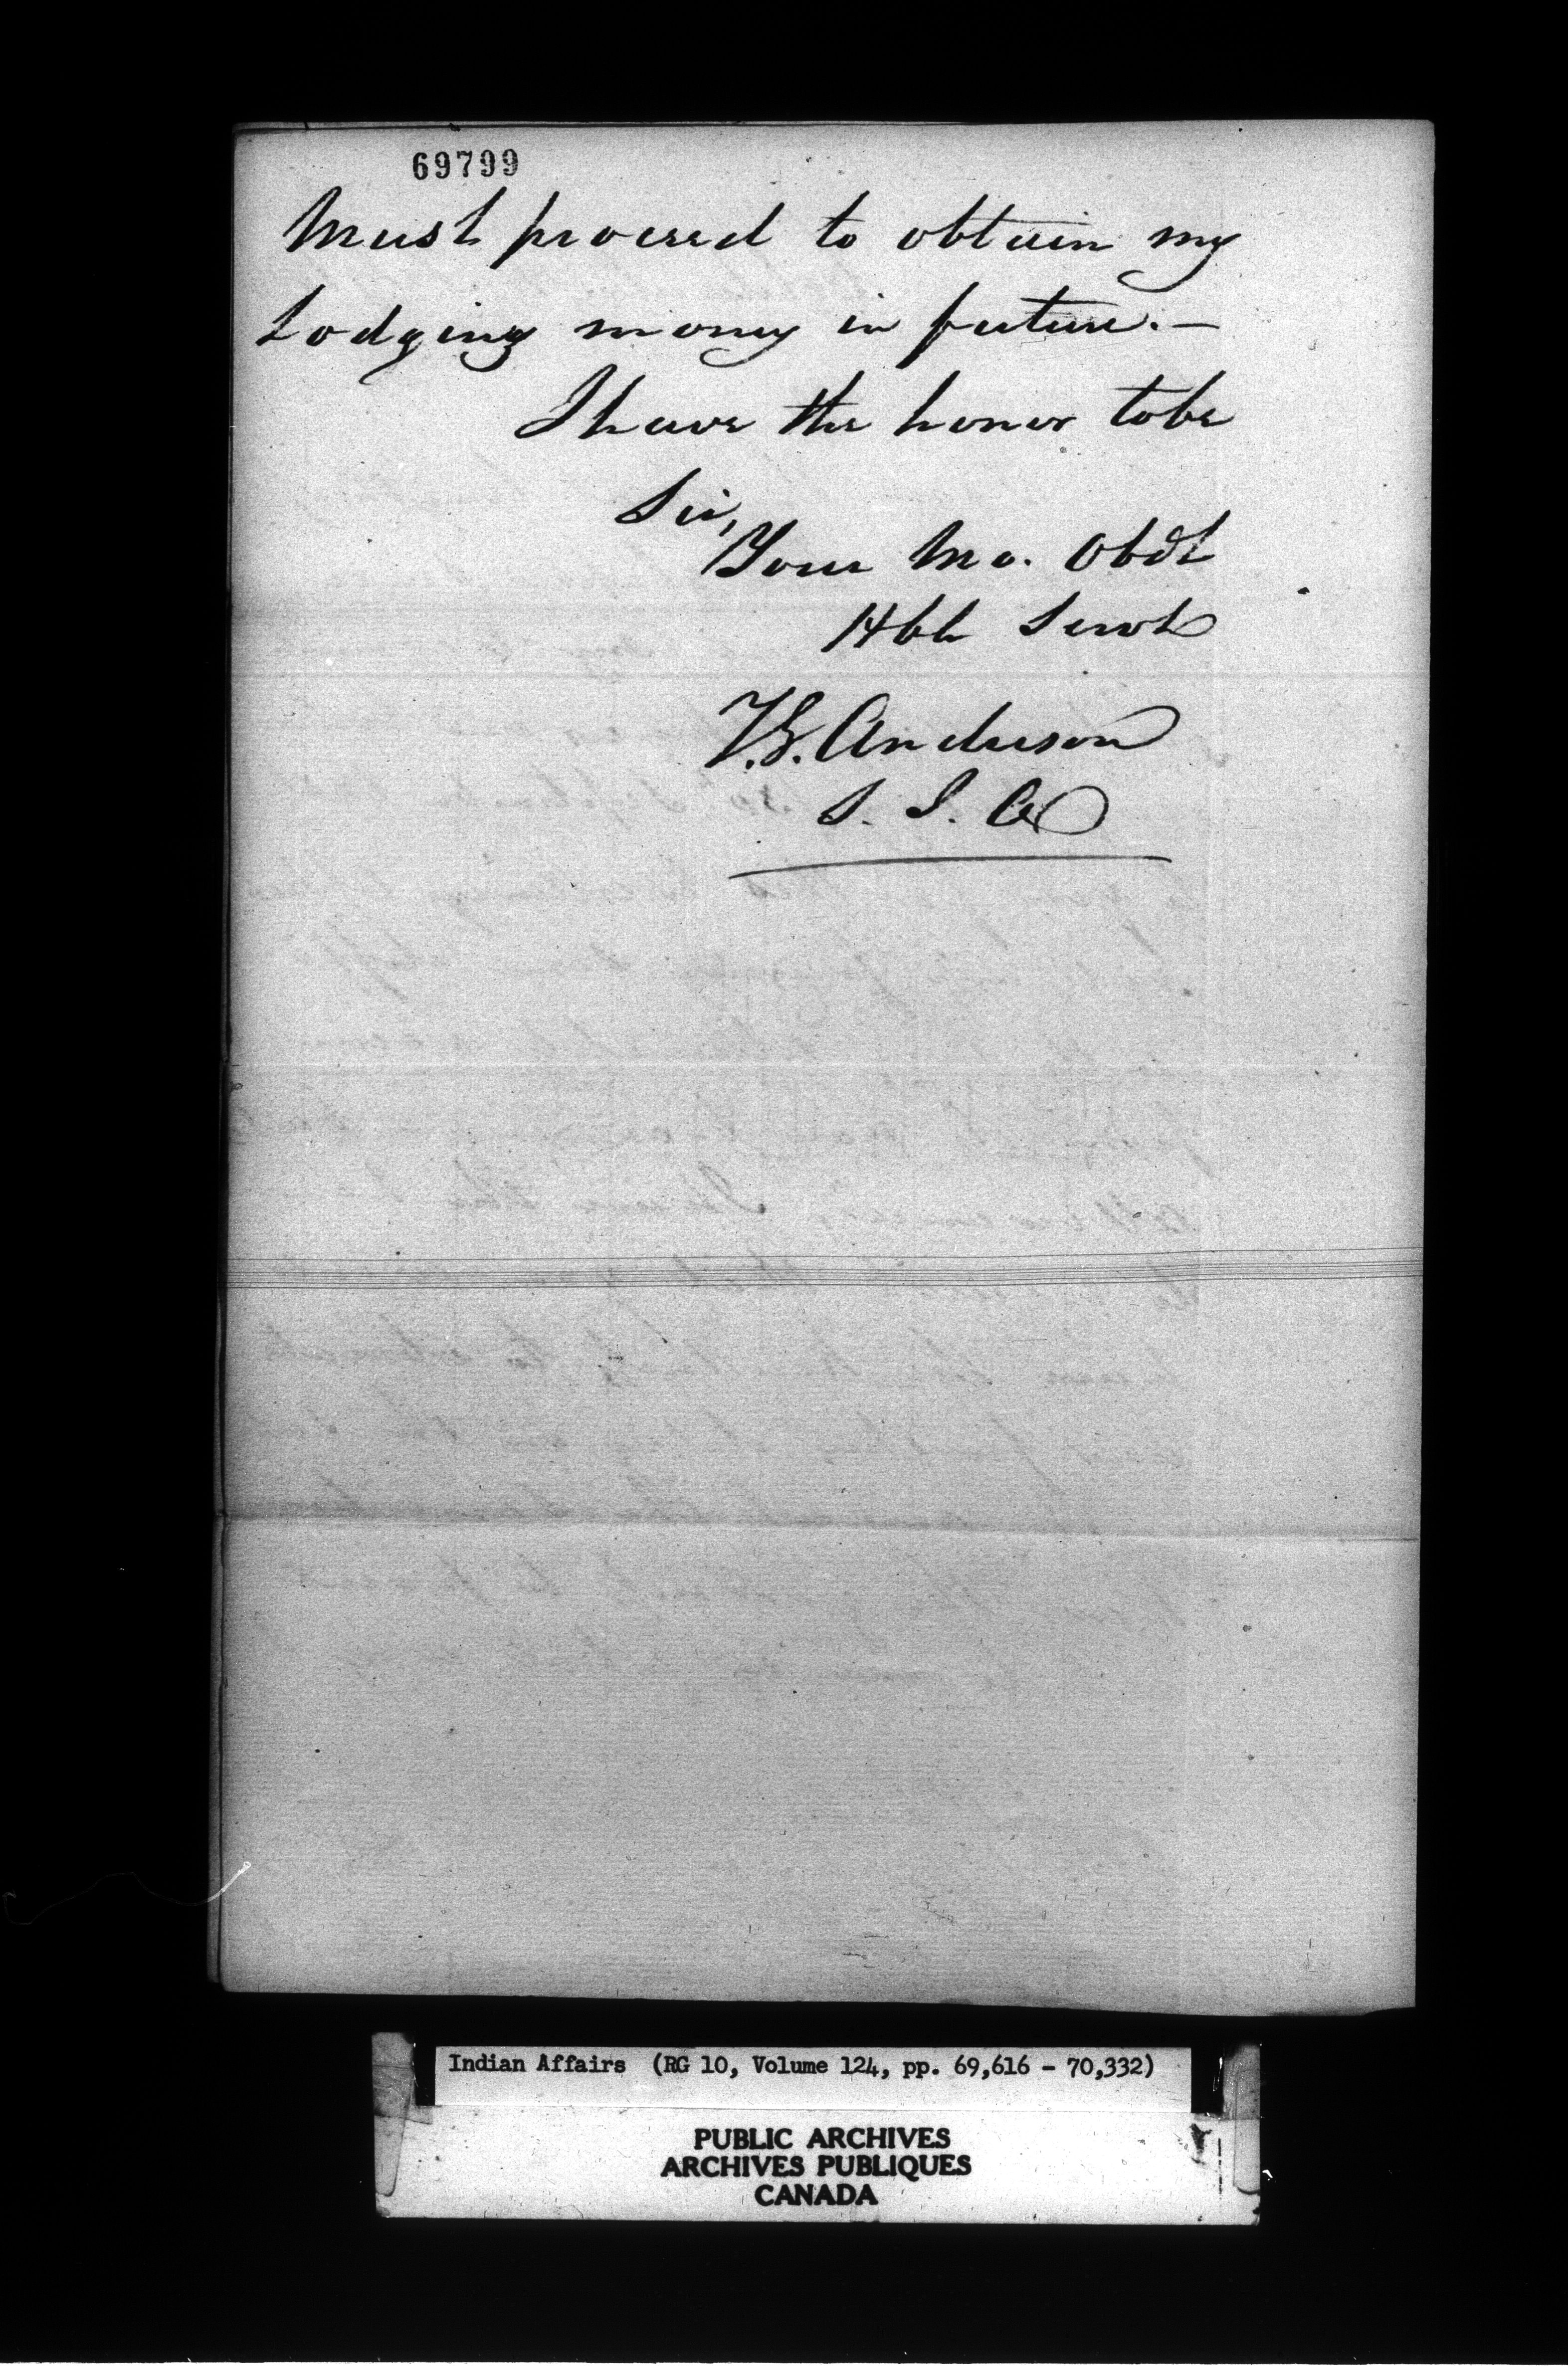 69799
Must proceed to obtain my
Lodging money in future. —
I have the honor to be
Sir,
Your Mo. Obdt
Hble Servt
T. G. Anderson
S. I. A
Indian Affairs (RG 10, Volume 124, pp. 69,616 - 70,332)
PUBLIC ARCHIVES
ARCHIVES PUBLIQUES
CANADA